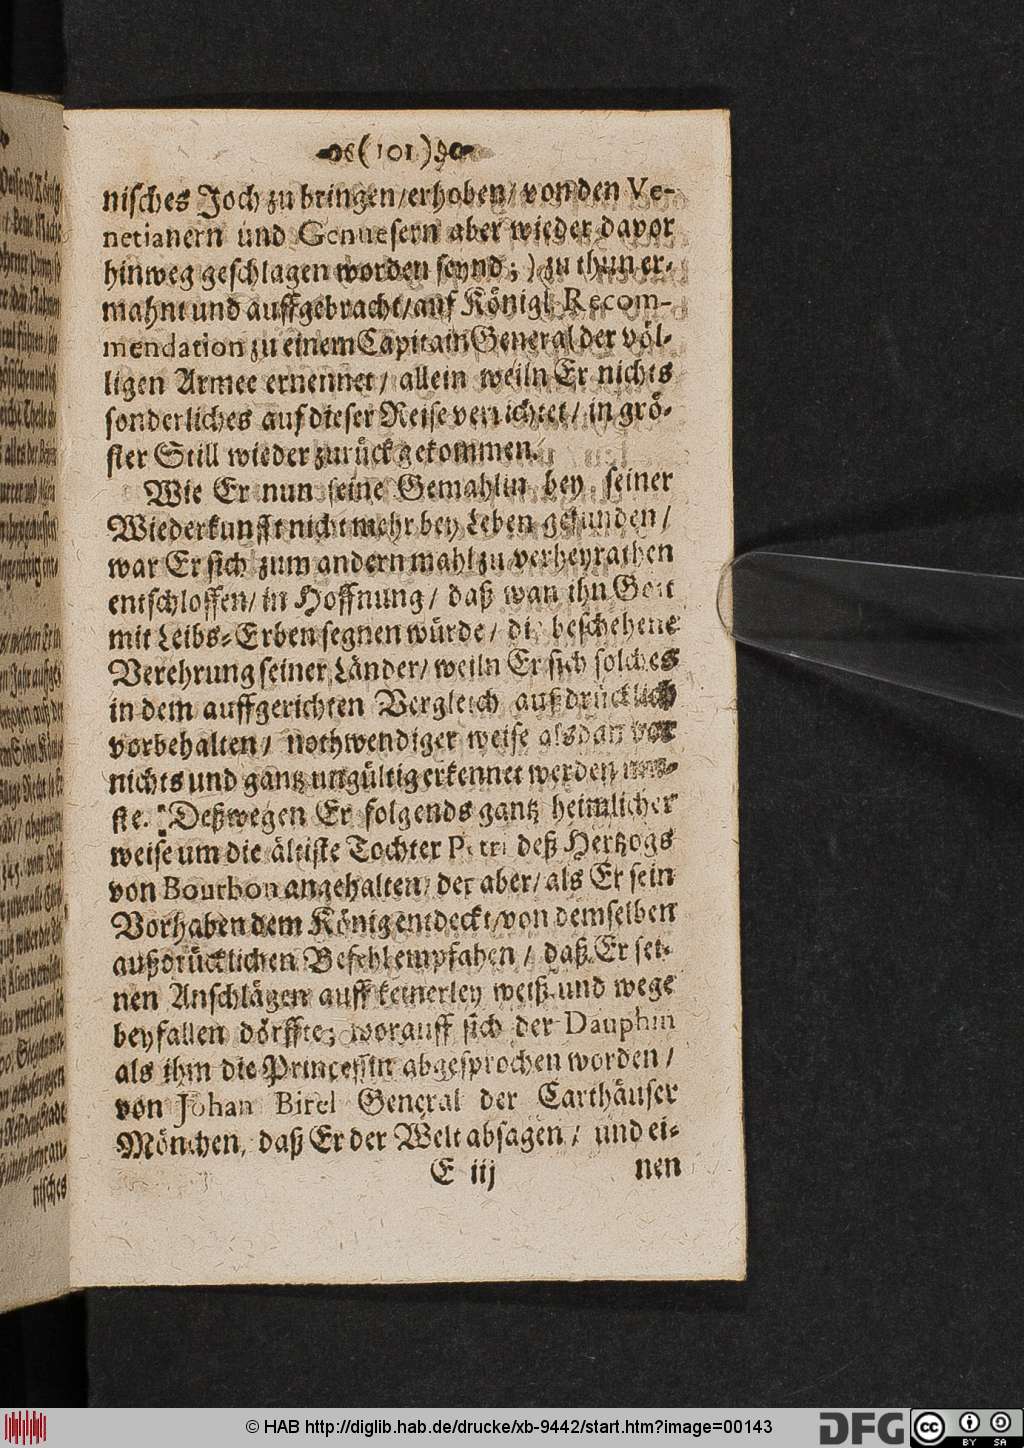 (101)
nisches Joch zu bringen/erhoben/ von den Ve-
netianern und Genuesern aber wieder davor
hinweg geschlagen worden seynd;) zu thun er-
mahnt und auffgebracht/auf Königl. Recom-
mendation zu einem Capitain General der völ-
ligen Armee ernennet/ allein weiln Er nichts
sonderliches auf dieser Reise verrichtet/ in grö-
ster Still wieder zurück gekommen.
Wie Er nun seine Gemahlin bey seiner
Wiederkunfft nicht mehr bey Leben gefunden/
war Er sich zum andern mahl zu verheyrathen
entschlossen/ in Hoffnung/ daß wan ihn Gott
mit Leibs-Erben segnen würde/ die beschehene
Verehrung seiner Länder/ weiln Er sich solches
in dem auffgerichten Vergleich außdrücklich
vorbehalten/ nothwendiger weise alsdan vor
nichts und gantz ungültig erkennet werden mü-
ste. Deßwegen Er folgends gantz heimlicher
weise um die ältiste Tochter Petri deß Hertzogs
von Bourbon angehalten/ der aber/ als Er sein
Vorhaben dem König entdeckt/von demselben
außdrücklichen Befehl empfahen/ daß Er sei-
nen Anschlägen auff keinerley weiß und wege
beyfallen dörffte; worauff sich der Dauphin
als ihm die Princessin abgesprochen worden/
von Johan Birel General der Carthäuser
Mönchen, daß Er der Welt absagen/ und ei-
E iij nen
nisches
© HAB http://diglib.hab.de/drucke/xb-9442/start.htm?image=00143
DFG
cc BY SA